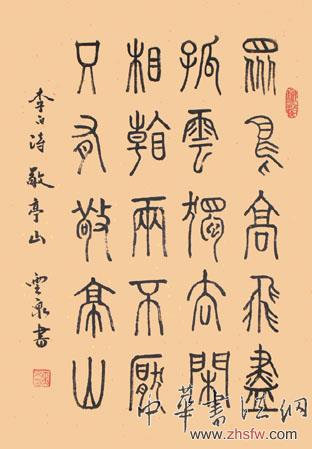 眾鳥高飛盡
孤雲獨去閑
相看兩不厭
只有敬亭山
李白诗 敬亭山 雲泉書
中華書法網
www.zhsfw.com